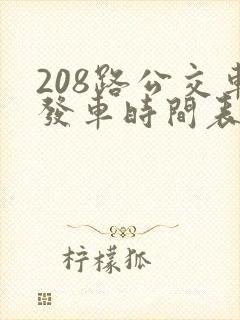 208路公交車
發車時間表
柠檬狐